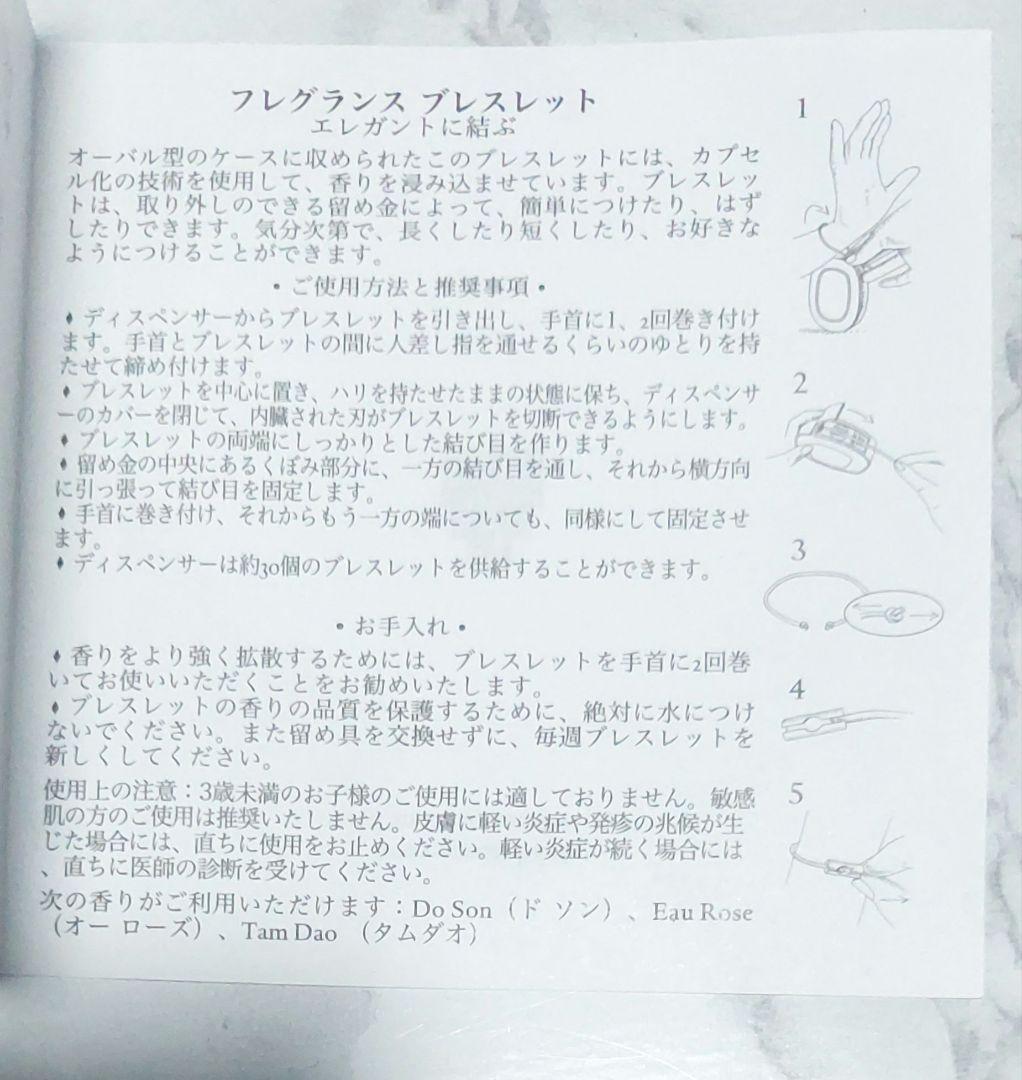 フレグランス ブレスレット
エレガントに結ぶ
オーバル型のケースに収められたこのブレスレットには、カプセ
ル化の技術を使用して、香りを浸み込ませています。ブレスレッ
トは、取り外しのできる留め金によって、簡単につけたり、はず
したりできます。気分次第で、長くしたり短くしたり、お好きな
ようにつけることができます。
・ご使用方法と推奨事項・
♦ ディスペンサーからブレスレットを引き出し、手首に1、2回巻き付け
ます。手首とブレスレットの間に人差し指を通せるくらいのゆとりを持
たせて締め付けます。
♦ ブレスレットを中心に置き、ハリを持たせたままの状態に保ち、ディスペンサ
ーのカバーを閉じて、内臓された刃がブレスレットを切断できるようにします。
♦ ブレスレットの両端にしっかりとした結び目を作ります。
♦ 留め金の中央にあるくぼみ部分に、一方の結び目を通し、それから横方向
に引っ張って結び目を固定します。
♦ 手首に巻き付け、それからもう一方の端についても、同様にして固定させ
ます。
♦ ディスペンサーは約30個のブレスレットを供給することができます。
・お手入れ・
♦ 香りをより強く拡散するためには、ブレスレットを手首に2回巻
いてお使いいただくことをお勧めいたします。
♦ ブレスレットの香りの品質を保護するために、絶対に水につけ
ないでください。また留め具を交換せずに、毎週ブレスレットを
新しくしてください。
使用上の注意：3歳未満のお子様のご使用には適しておりません。敏感
肌の方のご使用は推奨いたしません。皮膚に軽い炎症や発疹の兆候が生
じた場合には、直ちに使用をお止めください。軽い炎症が続く場合には
、直ちに医師の診断を受けてください。
次の香りがご利用いただけます：Do Son（ド ソン）、Eau Rose
（オー ローズ）、Tam Dao （タムダオ）
1
2
3
4
5